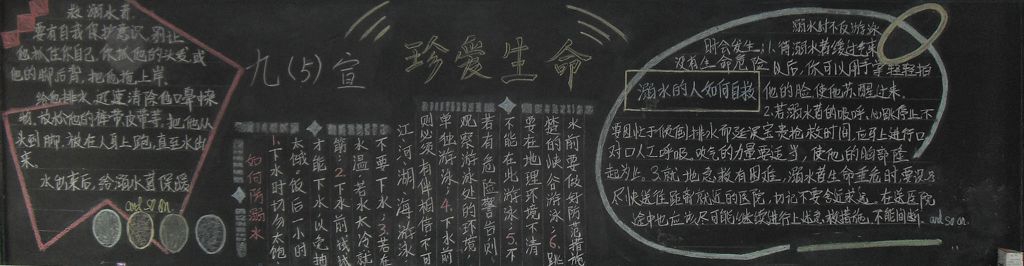 救溺水者
要有自我保护意识,别让
他抓住你自己,你抓他的头发或
他的脚后背,把他拖上岸。
给他排水,还要清除他口鼻
物,放松他的裤带皮带等,把他从
头到脚,被在人身上跑,直至水出
来。
水出来后,给溺水者保暖
and so on.
九(5)宣
珍爱生命
如何防溺水
1.下水时切勿太饱、
太饿。饭后一小时
才能下水,以免抽
筋;2.下水前试试
水温,若水太冷,就
不要下水;3.若在
江河湖海游泳,
则必须有伴相伴,不可
单独游泳;4.下水前
观察游泳处的环境,
若有危险警告,则
不能在此游泳;5.不
要在地理环境不清
楚的峡谷游泳;6.跳
水前要做好防范措施
溺水的人如何自救
溺水时不及游泳
时会发生:1.背溺水者线过来
没有生命危险以后,你可以用手轻轻拍
他的脸使他苏醒过来。
2.若溺水者的呼吸、心跳停止,不
要因忙于倾倒排水而延误宝贵抢救时间,应马上进行口
对口人工呼吸,吹气的力量要适当,使他的胸部隆
起为止。3.就地急救有困难,溺水者生命垂危时要
尽快送往距离就近的医院,切记不要舍近求远。在送医院
途中也应该尽可能继续进行上述急救措施,不能间断。and so on.